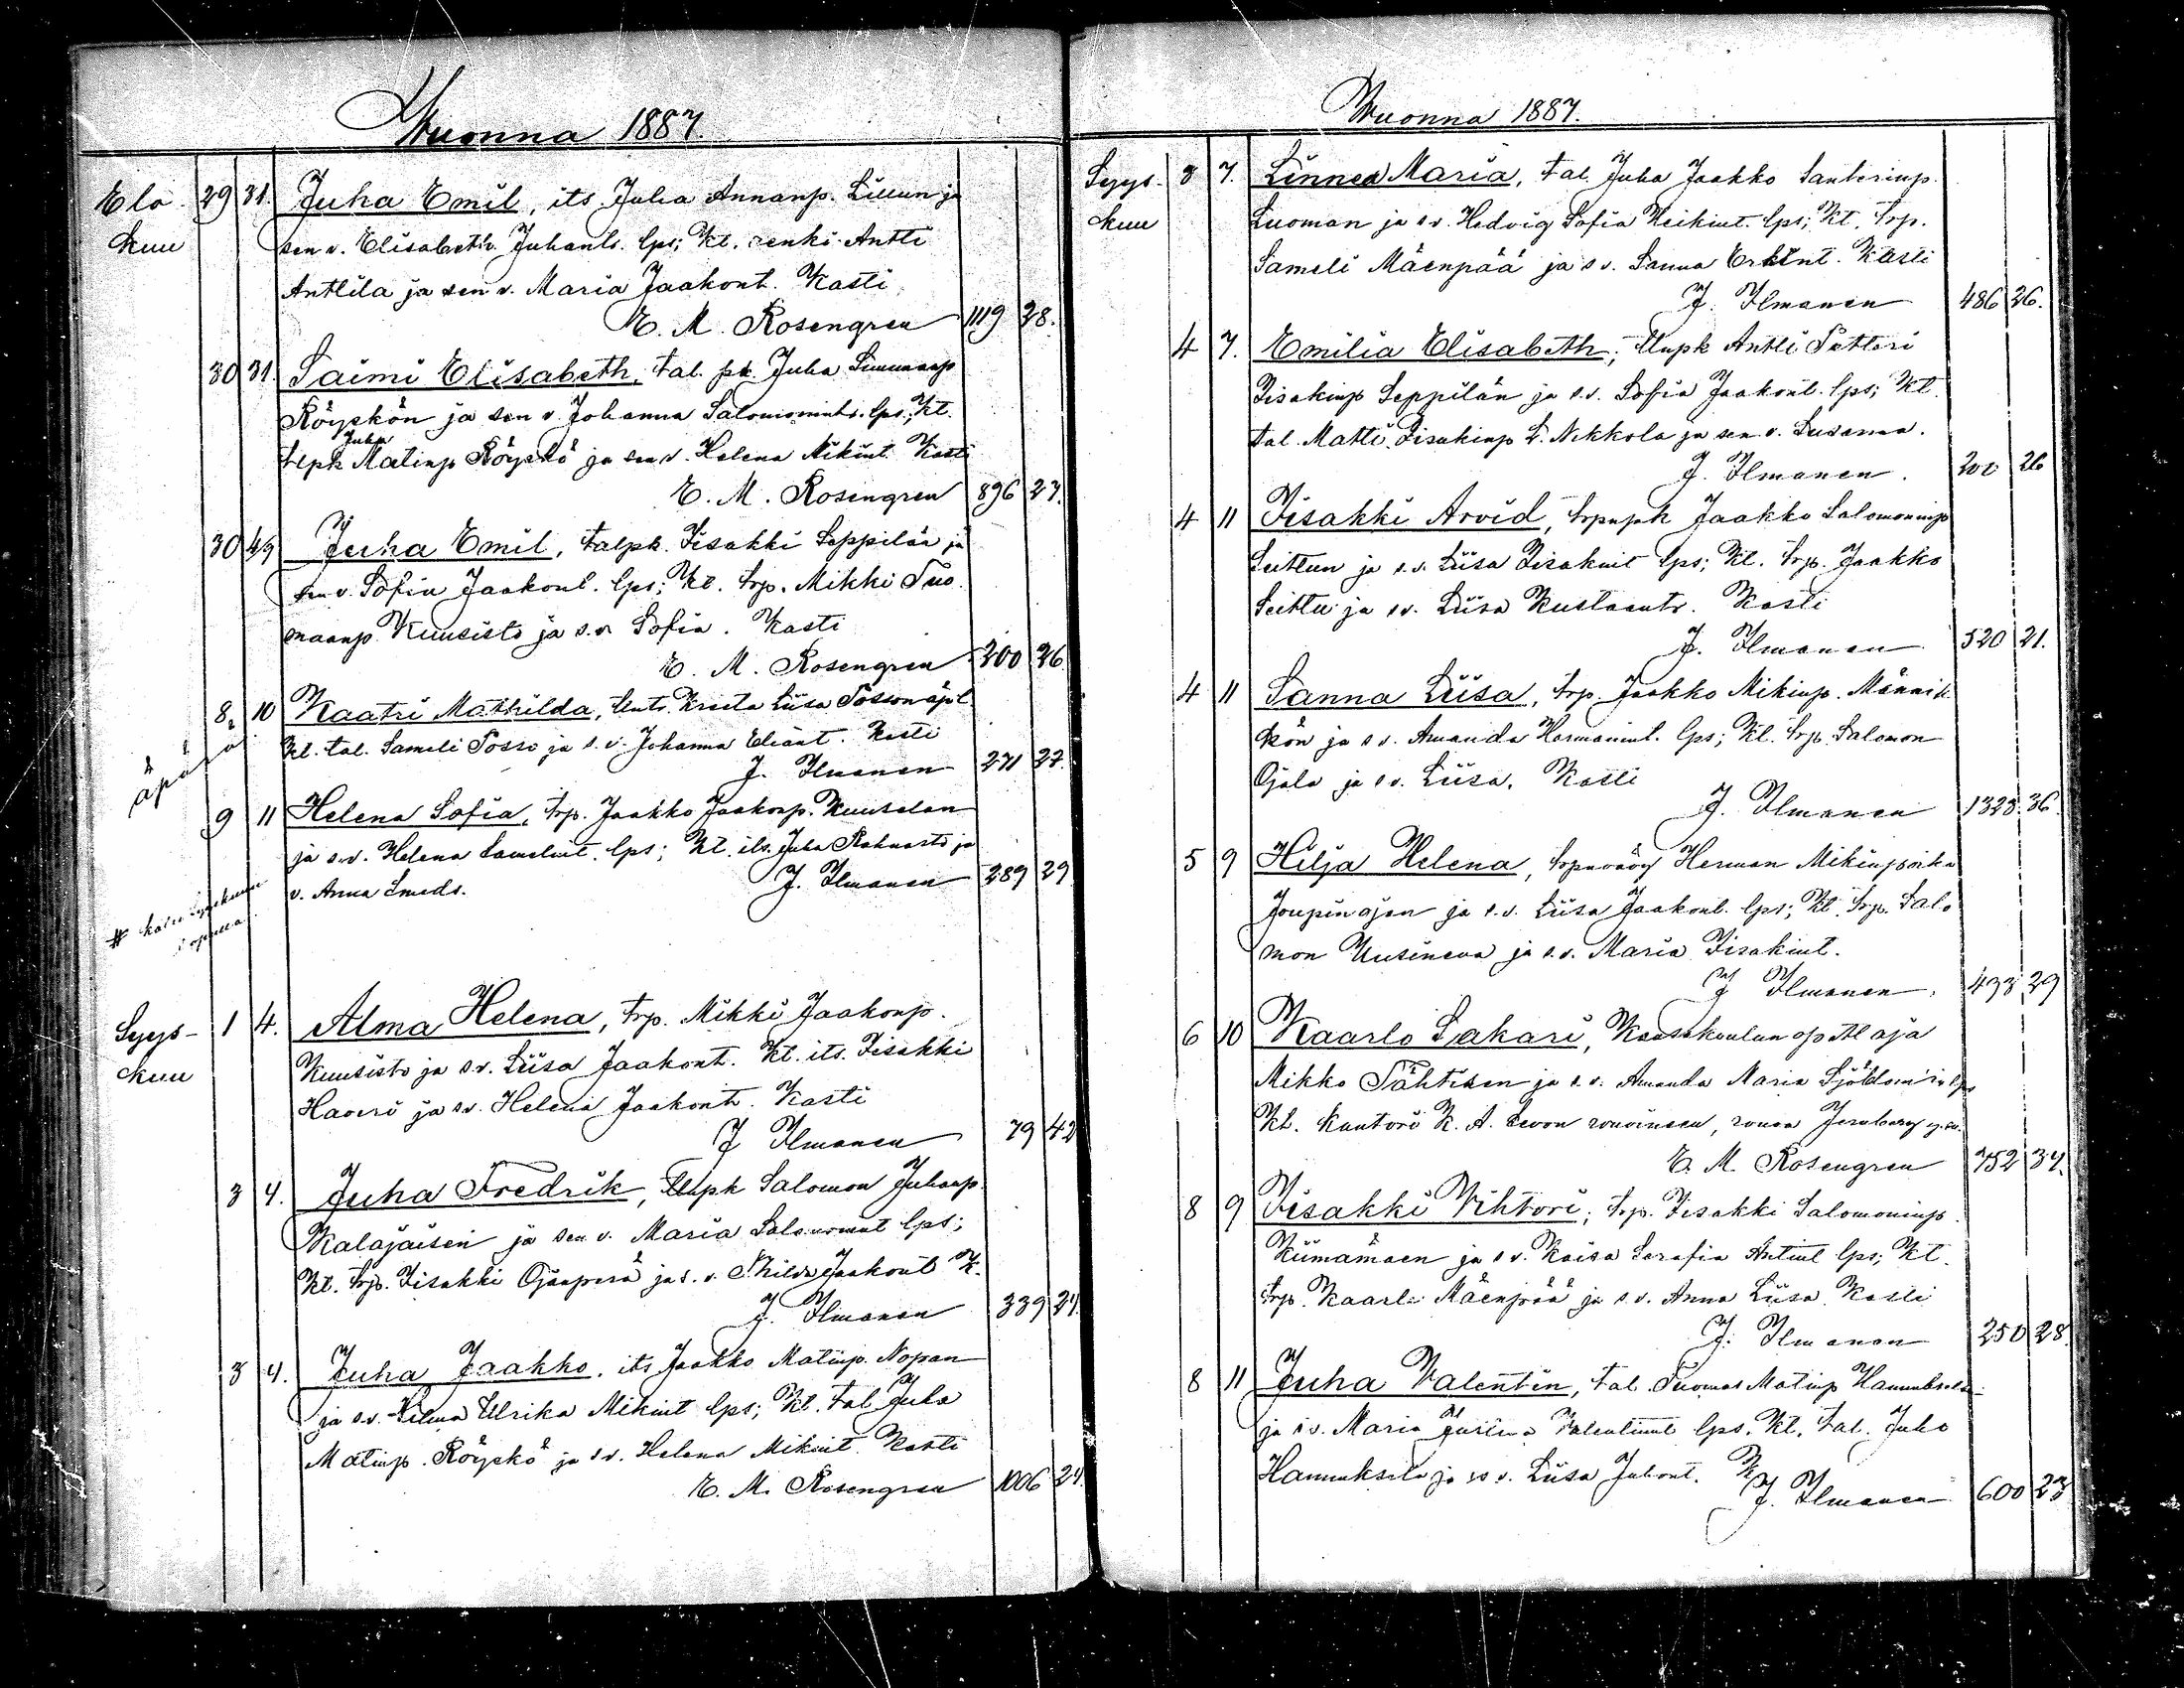 Wuonna 1887.
Elo- 29 31. Juha Emil, its. Juha Annanp. Lillun ja
kuu sen v. Elisabeth Juhant. lps; Kt. renki Antti
Anttila ja sen v. Maria Jaakont. Kasti
E. M. Rosengren 1119 28.
30 31. Saimi Elisabeth, tal. pk. Juha
Röyskön ja sen v. Johanna lps; Kt.
Juha
tlpk Matinp Röyskö ja sen v. Helena Mikint. Kasti
E. M. Rosengren 896 27.
30 4/9 Juha Emil, talpk. Iisakki Seppilän ja
sen v. Sofia Jaakont. lps; Kt. trp. Mikki Tuo
maanp. Kuusisto ja s.v. Sofia. Kasti
E. M. Rosengren 200 26
8 10 Kaatri Mathilda, Liisa Posson äpl
Kt. tal. Sameli Posso ja s.v. Johanna Eliant. Kasti
J. Ilmanen 271 27.
äpärä
9 11 Helena Sofia, trp. Jaakko Jaakonp. Kuuselan
ja s.v. Helena lps; Kt. its. Juha ja
v. Anna Smeds. J. Ilmanen 289 29
# katso Syyskuun
lopussa
Syys- 1 4. Alma Helena, trp. Mikki Jaakonp.
kuu Kuusisto ja s.v. Liisa Jaakont. Kt. its. Iisakki
Haveri ja s.v. Helena Jaakont. Kasti
J Ilmanen 79 42
3 4. Juha Fredrik, tlpk Salomon Juhanp.
Kalajaisen ja sen v. Maria lps;
Kt. trp. Iisakki Ojanperä ja s.v. Jaakont K.
J. Ilmanen 339 24.
3 4. Juha Jaakko, its Jaakko Matinp. Nopan
ja s.v. Ulrika Mikint lps; Kt. tal Juha
Matinp. Röyskö ja s.v. Helena Mikint. Kasti
E. M. Rosengren 1006 24.
Wuonna 1887.
Syys- 3 7. Linnea Maria, tal. Juha Jaakko Santerinp.
kuu Luoman ja s.v. Hedvig Sofia Heikint. lps; Kt. trp.
Sameli Mäenpää ja s v. Sanna Erkint. Kasti
J. Ilmanen 486 26.
4 7. Emilia Elisabeth, tlnpk Antti Petteri
Iisakinp Seppilän ja s.v. Sofia Jaakont. lps; Kt.
tal. Matti Iisakinp L. Nikkola ja sen v. Susanna.
J. Ilmanen. 200 26
4 11 Iisakki Arvid, Jaakko Salomoninp
Seittun ja s.v. Liisa Iisakint lps; Kt. trp. Jaakko
Seittu ja s.v. Liisa Kustaantr. Kasti
J. Ilmanen 520 21.
4 11 Sanna Liisa, trp. Jaakko Mikinp. Männik
kön ja s v. Amanda Hermannint. lps; Kt. trp. Salomon
Ojala ja s v. Liisa. Kasti
J. Ilmanen 1323. 36
5 9 Hilja Helena, Herman
Joupinojan ja s.v. Liisa Jaakont. lps; Kt. trp. Salo
mon Uusineva ja s.v. Maria Iisakint.
J Ilmanen. 493 29
6 10 Kaarlo Sakari, Kansakoulun opettaja
Mikko Tähtisen ja s.v. Amanda Maria lps
Kt. Kanttori K. A. rouvineen, rouva
E. M. Rosengren 752 34.
8 9 Iisakki Vihtori, trp. Iisakki Salomoninp.
Kiimamäen ja s v. Kaisa Serafia Antint lps; Kt.
trp. Kaarle Mäenpää ja s.v. Anna Liisa. Kasti
J. Ilmanen 250 28
8 11 Juha Valentin, tal. Tuomas Matinp Hannuksela
ja s.v. Maria Valentinint lps. Kt. tal. Juho
Hannuksela ja s v. Liisa Juhont. K
J. Ilmanen 600 23